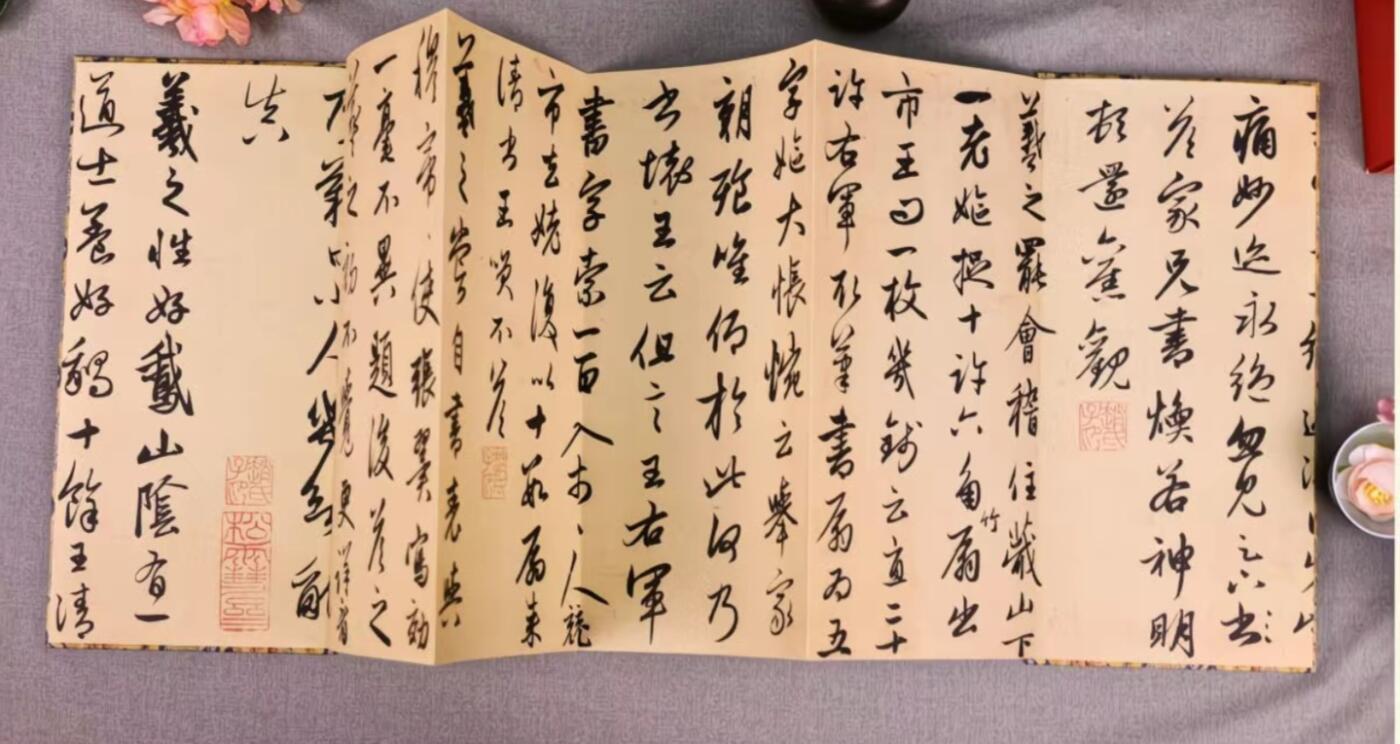 痛妙迹永絶忽見足下書
答家兄書煥若神明
頓還舊觀
趙氏子昂
羲之罷會稽住蕺山下
一老嫗捉十許六角竹扇出
市王曰一枚幾錢云直二十
許右軍取筆書扇為五
字嫗大悵惋云舉家
朝飱唯仰於此何乃
書壞王云但言王右軍
書字索一百入市〻人競
市去姥復以十數扇來
請書王笑不答
羲之嘗自書表與
穆帝〻使張翼寫効
一毫不異題後答之
羲之初不覺更詳看
乃歎曰小人幾欲亂
真
趙氏子昂
松雪齋
羲之性好鵞山陰有一
道士養好鵝十餘王清